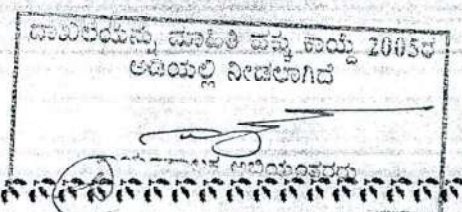 ದಾಖಲೆಯನ್ನು ಮಾಹಿತಿ ಹಕ್ಕು ಕಾಯ್ದೆ 2005ರ
ಅಡಿಯಲ್ಲಿ ನೀಡಲಾಗಿದೆ
ಅಭಿಯಂತರರು